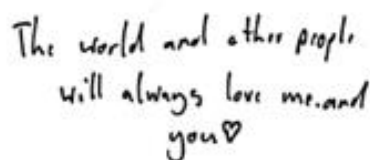 The world and other people
will always love me.and
you♡